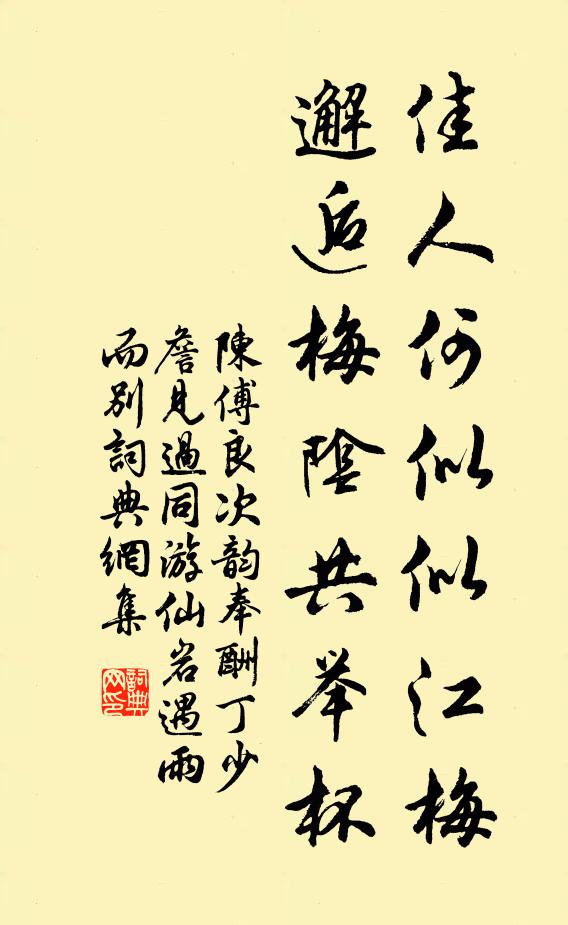 佳人何似似江梅
邂逅梅陰共举杯
陳傅良次韵奉酬丁少
詹見過同游仙岩遇雨
而别詞典網集
詞典
网印